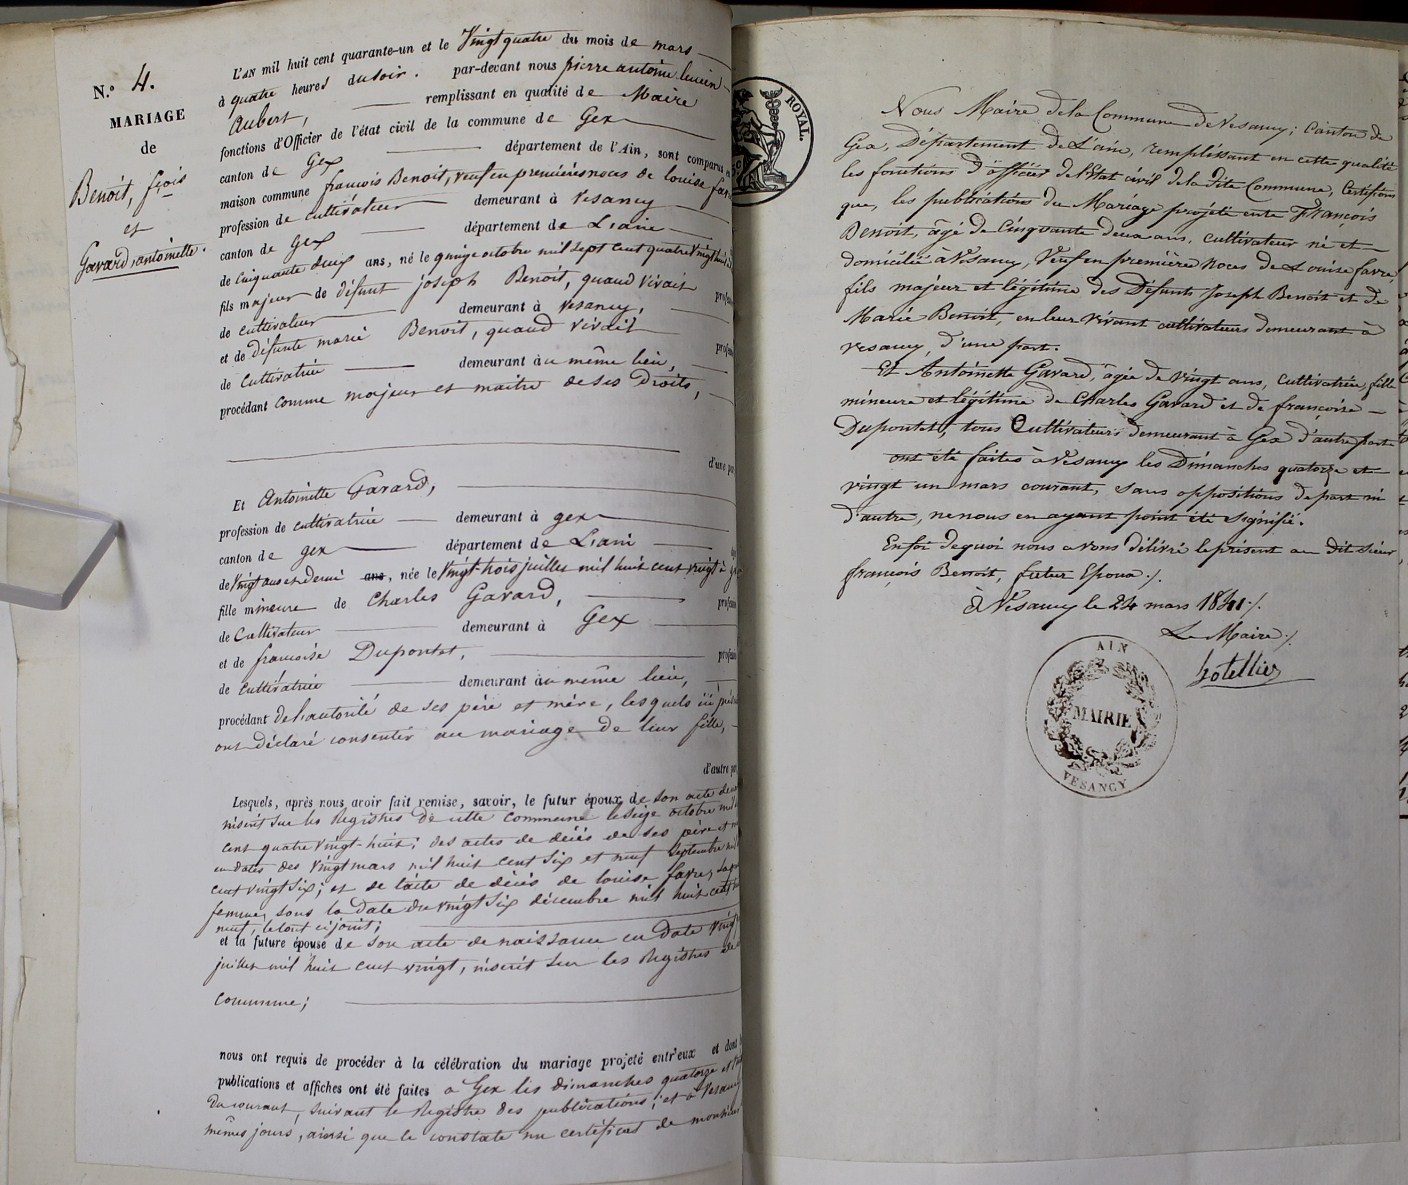 N.º 4.
MARIAGE
de
Benoit, fçois
et
Gavard, antoinette.
L'AN mil huit cent quarante-un et le Vingt quatre du mois de mars
à quatre heures du soir. par-devant nous pierre antoine lucien
Aubert, remplissant en qualité de Maire
fonctions d'Officier de l'état civil de la commune de Gex
canton de Gex département de l'Ain, sont comparus en
maison commune francois Benoit, veuf en premières noces de louise fav
profession de cultivateur demeurant à Vesancy
canton de Gex département de L'ain
de Cinquante deux ans, né le quinze octobre mil sept cent quatre vingt huit à
fils majeur de défunt joseph Benoit, quand vivait profes
de cultivateur demeurant à Vesancy,
et de défunte marie Benoit, quand vivait profes
de Cultivatrice demeurant au même lieu,
procédant comme majeur et maître de ses Droits,
d'une pa
Et Antoinette Gavard,
profession de cultivatrice demeurant à gex
canton de gex département de L'ain
de Vingt ans et demi ans, née le Vingt-trois juillet mil huit cent vingt à g
fille mineure de Charles Gavard, profess
de Cultivateur demeurant à Gex
et de francoise Dupontet, profess
de cultivatrice demeurant au même lieu,
procédant de l'autorité de ses père et mère, lesquels ici prés
ont déclaré consentir au mariage de leur fille,
d'autre pa
Lesquels, après nous avoir fait remise, savoir, le futur époux de son acte de
inscrit sur les Registres de cette commune le seize octobre mil
cent quatre vingt-huit; des actes de décès de ses père et m
en dates des Vingt mars mil huit cent six et neuf septembre mil
cent vingt six; et de l'acte de décès de louise favre, sa p
femme, sous la date du vingt six décembre mil huit cent
neuf, le tout ci joint;
et la future épouse de son acte de naissance en date vingt
juillet mil huit cent vingt, inscrit sur les Registres de
commune;
nous ont requis de procéder à la célébration du mariage projeté entr'eux et dont
publications et affiches ont été faites à Gex les dimanches quatorze et
du courant, suivant le Registre des publications; et à Vesancy
mêmes jours, ainsi que le constate un certificat de monsieur
ROYAL.
Nous Maire de la Commune de Vesancy, Canton de
Gex, Département de L'ain, remplissant en cette qualité
les fonctions d'officier de l'Etat civil de la dite Commune, Certifions
que, les publications du Mariage projeté entre François
Benoit, âgé de Cinquante deux ans, cultivateur né et
domicilié à Vesancy, Veuf en première noces de Louise favre,
fils majeur et légitime des Défunts Joseph Benoit et de
Marie Benoit, en leur vivant cultivateurs demeurant à
vesancy, d'une part.
Et Antoinette Gavard, âgée de vingt ans, cultivatrice, fille
mineure et légitime de Charles Gavard et de françoise
Dupontet, tous Cultivateurs demeurant à Gex d'autre part
ont été faites à Vesancy les Dimanches quatorze et
vingt un mars courant, sans oppositions de part ni
d'autre, ne nous en ayant point été signifié.
En foi de quoi nous avons délivré le présent au dit sieur
françois Benoit, futur Epoux ./.
à Vesancy le 24 mars 1841 ./.
Le Maire ./.
hotellier
AIN
MAIRIE
VESANCY